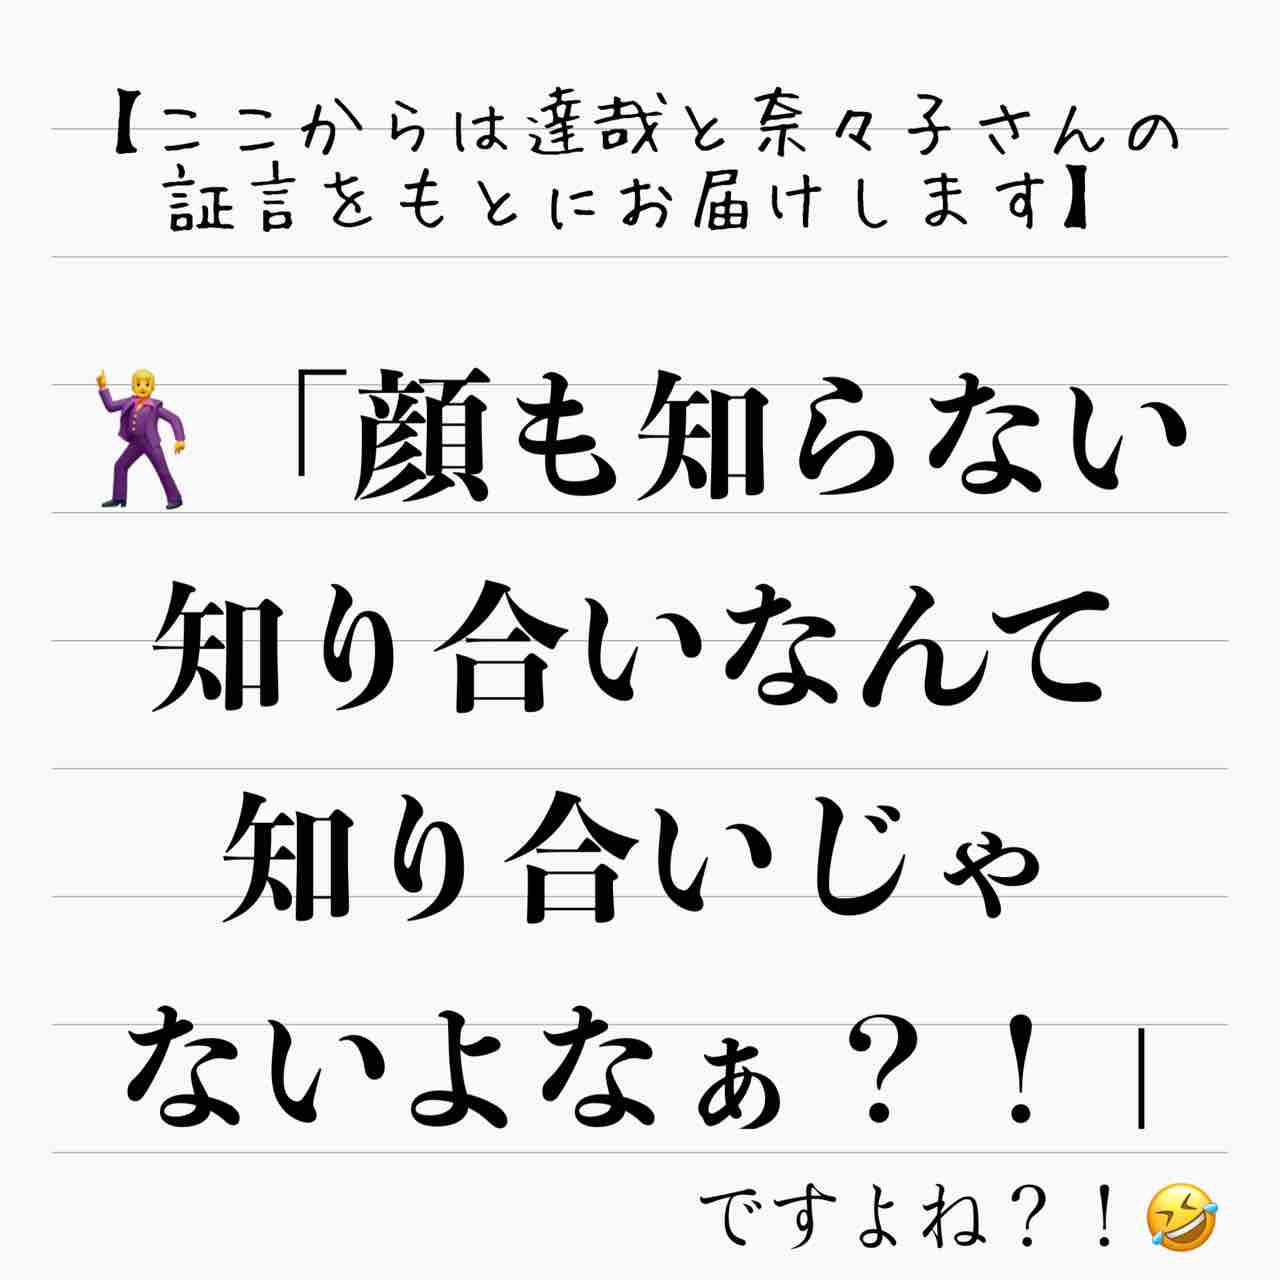 【ここからは達哉と奈々子さんの
証言をもとにお届けします】
🕺「顔も知らない
知り合いなんて
知り合いじゃ
ないよなぁ？！」
ですよね？！🤣